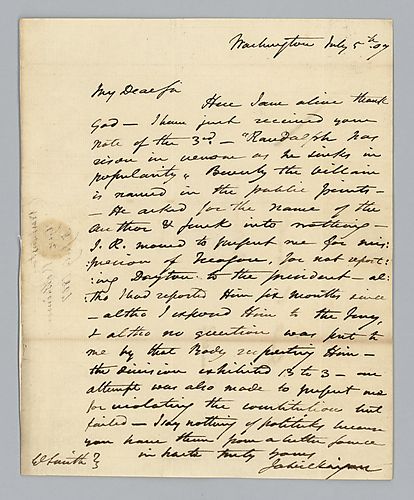 Washington July 5th 07
My Dear Sir
Here I am alive thank
God — I have just received your
note of the 3rd. — "Randolph has
risen in venom as he sinks in
popularity" Beverly the villain
is named in the public prints —
— He asked for the name of the
Author & sunk into nothing —
J. R. moved to present me for mis
:prision of Treason, for not report
:ing Dayton to the president — al:
tho I had reported Him six months since
— altho I exposed Him to the Jury,
& altho no question was put to
me by that Body respecting Him —
the division exhibited 13 to 3 — an
attempt was also made to present me
for violating the constitution but
failed — I say nothing of politicks because
you have them from a better source
in haste truly yours
Ja Wilkinson
W Smith